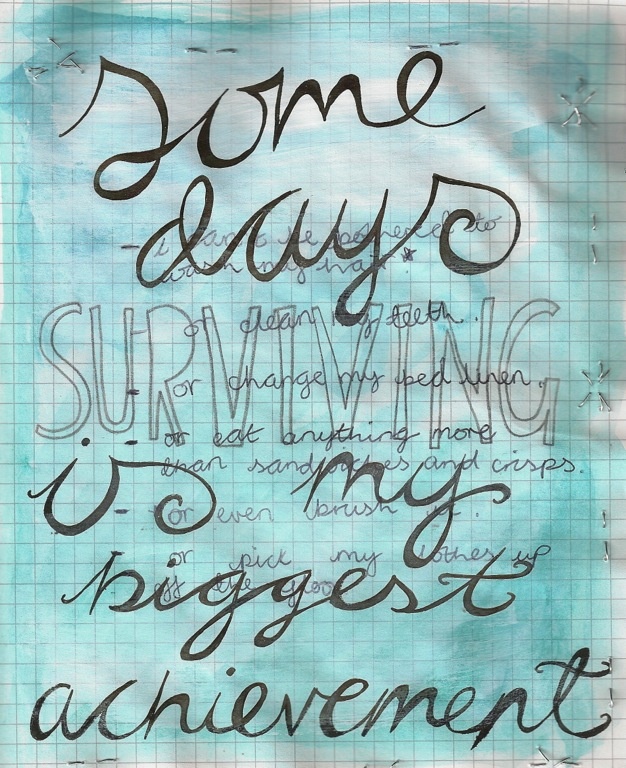 some
days
- i can't be bothered to
wash my hair *
- or clean my teeth.
SURVIVING
- or change my bed linen.
- or eat anything more
than sandwiches and crisps.
is my
- or even brush it.
or pick my clothes up
off the floor
biggest
achievement